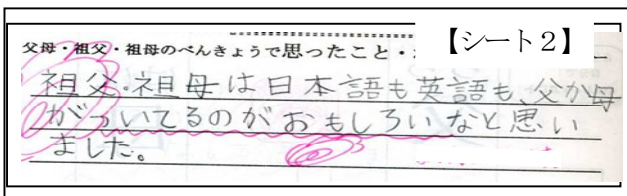 【シート２】
父母・祖父・祖母のべんきょうで思ったこと・
祖父・祖母は日本語も英語も、父か母
がついてるのがおもしろいなと思い
ました。